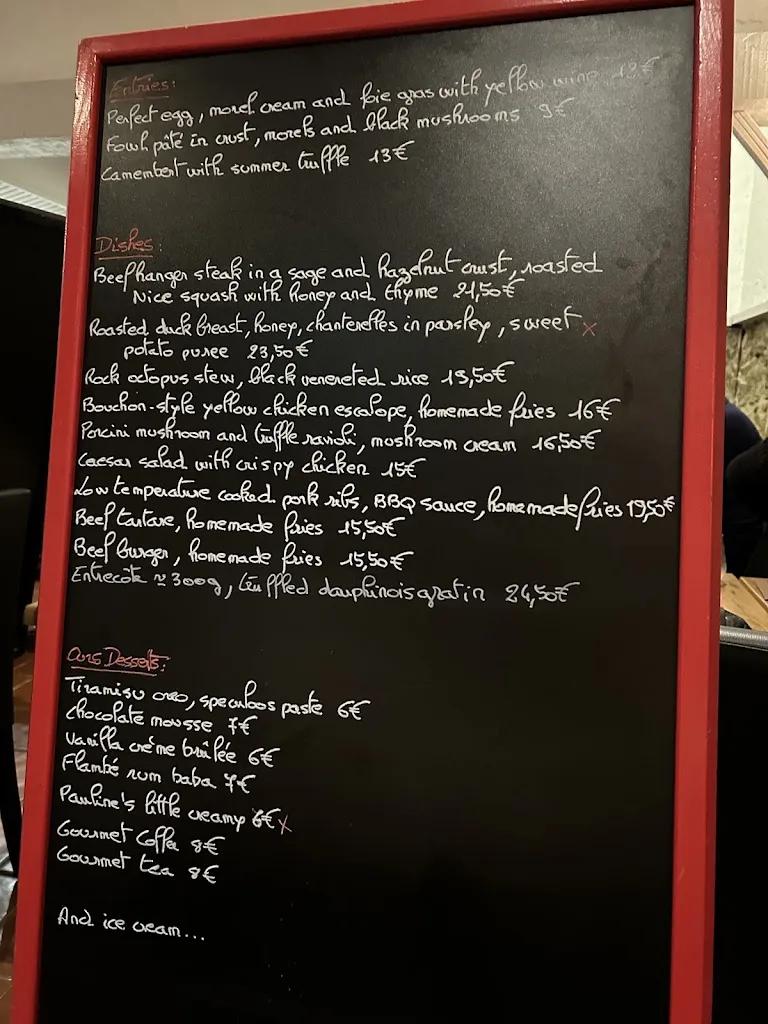 Entries:
Perfect egg, morel cream and foie gras with yellow wine 12€
Fowl pâté in crust, morels and black mushrooms 9€
Camembert with summer truffle 13€
Dishes:
Beef hanger steak in a sage and hazelnut crust, roasted
Nice squash with honey and thyme 21,50€
Roasted duck breast, honey, chanterelles in parsley, sweet x
potato puree 23,50€
Rock octopus stew, black venereted rice 19,50€
Bouchon-style yellow chicken escalope, homemade fries 16€
Porcini mushroom and truffle ravioli, mushroom cream 16,50€
Caesar salad with crispy chicken 15€
Low temperature cooked pork ribs, BBQ sauce, homemade fries 19,50€
Beef tartare, homemade fries 15,50€
Beef burger, homemade fries 15,50€
Entrecote ≃ 300g, truffled dauphinois gratin 24,50€
Ours Desserts:
Tiramisu oreo, speculoos paste 6€
Chocolate mousse 7€
Vanilla crème brûlée 6€
Flambé rum baba 7€
Pauline's little creamy 6€ x
Gourmet Coffee 8€
Gourmet tea 8€
And ice cream...